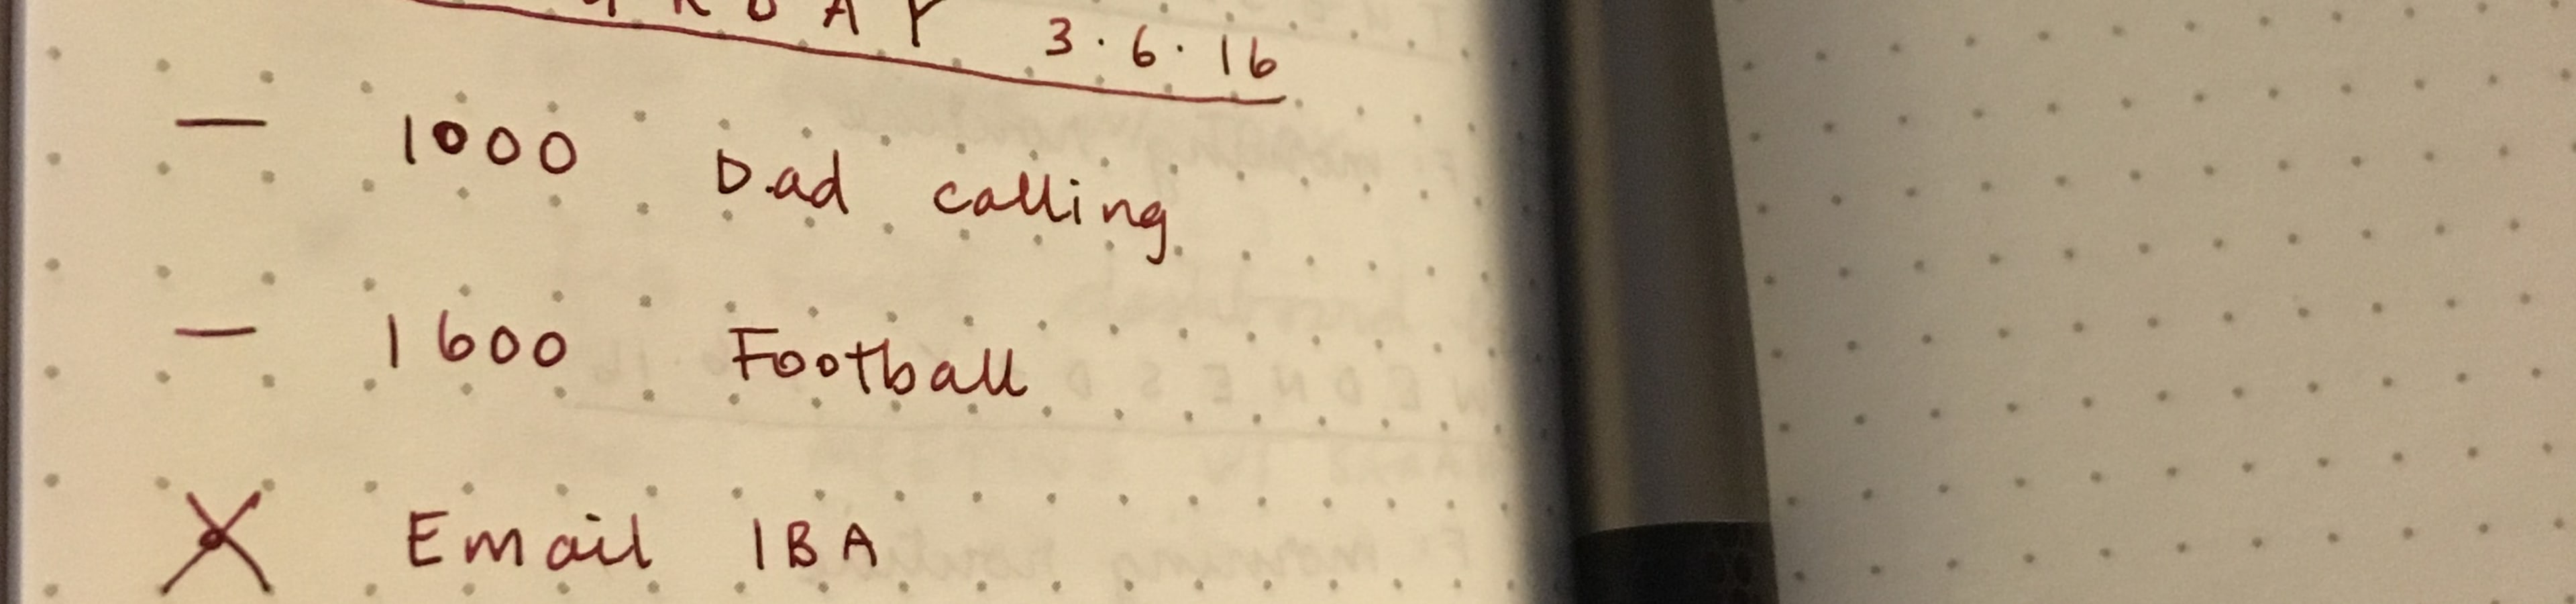 3.6.16
— 1000 Dad calling
— 1600 Football
X Email IBA